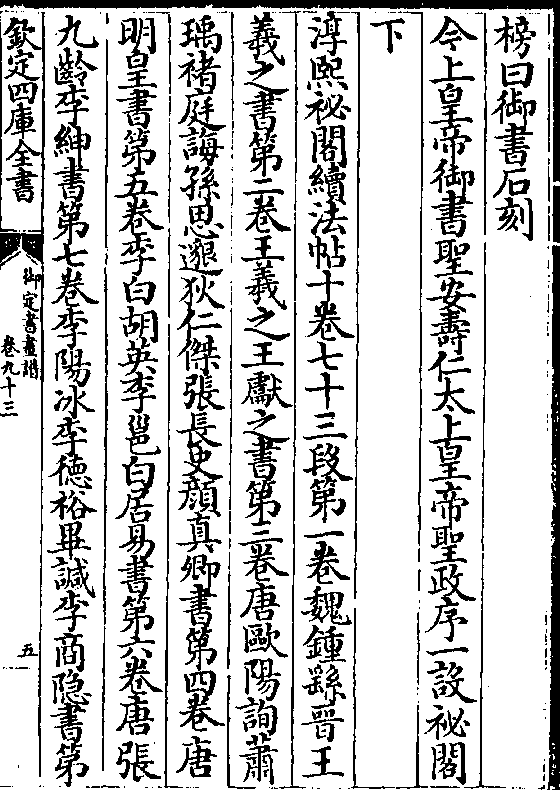 榜曰御書石刻
今上皇帝御書聖安壽仁太上皇帝聖政序一設祕閣
下
淳熙祕閣續法帖十卷七十三段第一卷魏鍾繇晉王
羲之書第二卷王羲之王獻之書第三卷唐歐陽詢蕭
瑀褚庭誨孫思邈狄仁傑張長史顔真卿書第四卷唐
明皇書第五卷李白胡英李邕白居易書第六卷唐張
九齡李紳書第七卷李陽冰李德裕畢諴李商隐書第
欽定四庫全書
御定書畫譜
卷九十三
五